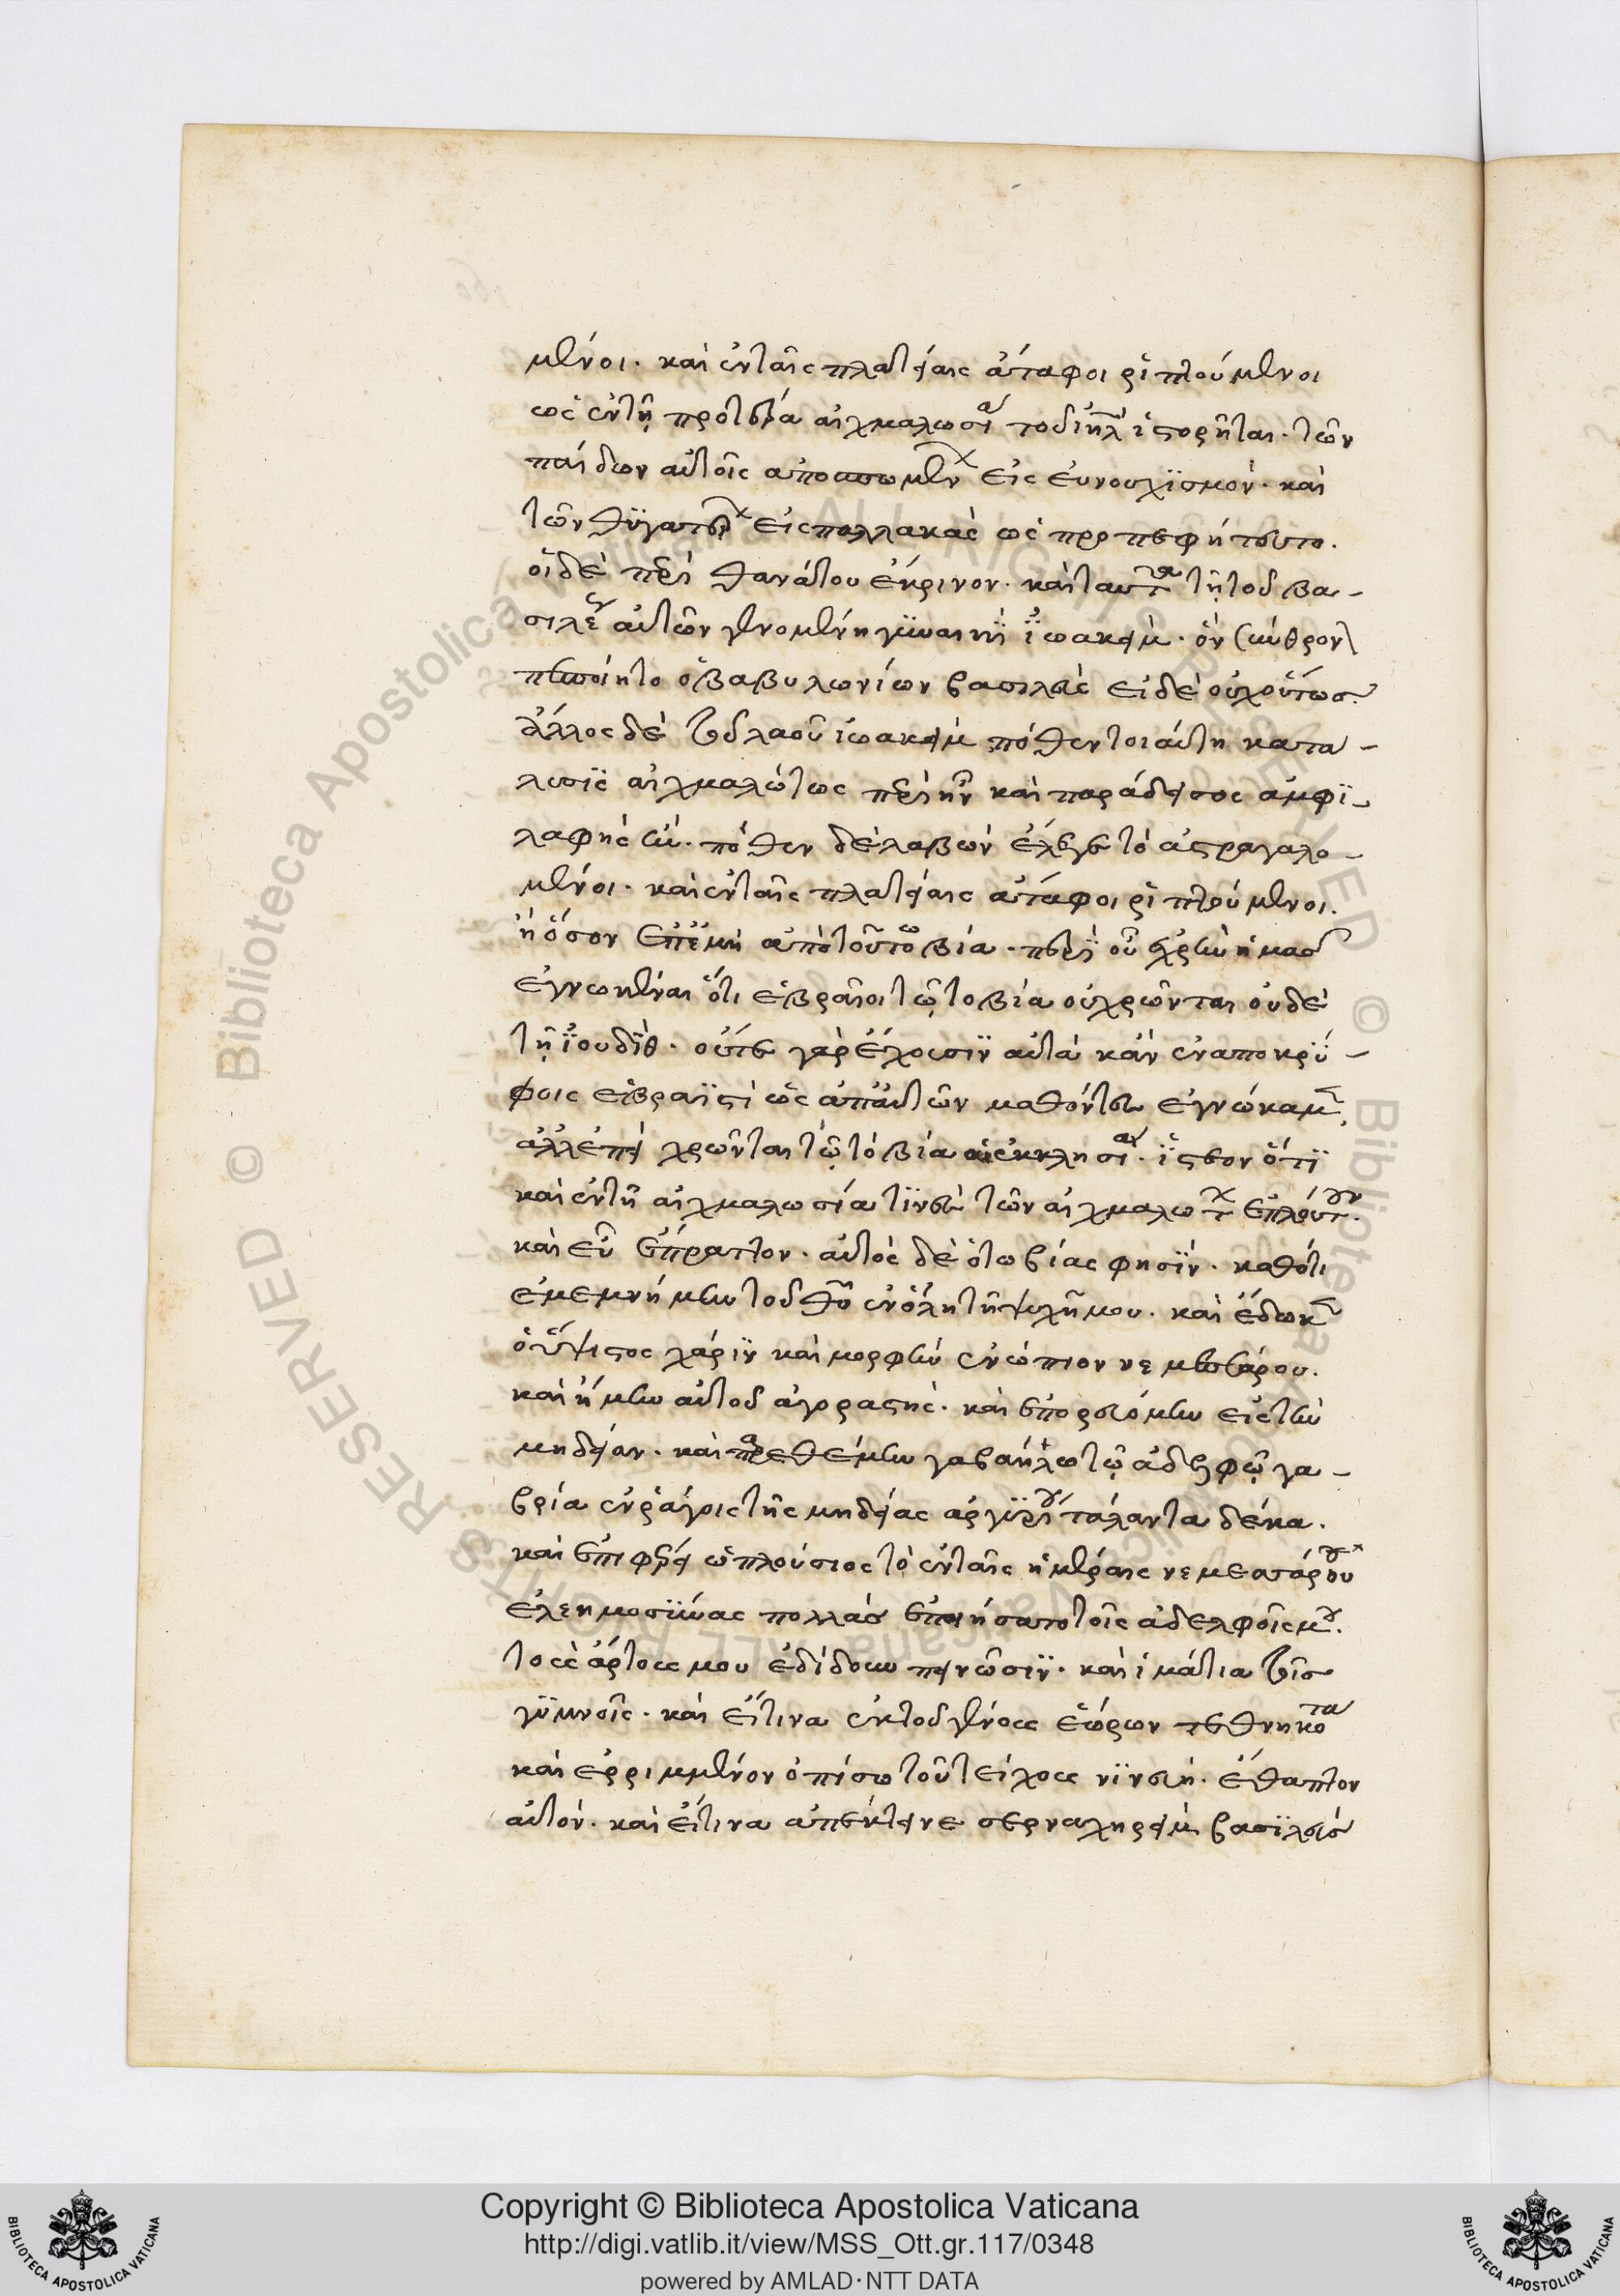 μένοι. καὶ ἐν ταῖς πλατείαις ἄταφοι ῥιπτούμενοι
ὡς ἐν τῇ προτέρα αἰχμαλωσία τοῦ ἱστόρηται. τῶν
παίδων αὐτοῖς ἀποσπωμένων εἰς εὐνουχϊσμόν. καὶ
τῶν θϋγατέρων εἰς παλλακὰς ὡς προπεφήτευτο.
οἱ δὲ περὶ θανάτου ἔκρινον. καὶ ταῦτα τῇ τοῦ βα-
σιλέως αὐτῶν γενομένη γϋναικὶ ϊωακεὶμ. ὃν σύνθρονον
πεποίητο ὁ βαβυλωνίων βασιλεὺς εἰ δὲ οὐχ οὕτως.
ἄλλος δὲ τοῦ λαοῦ ἰωακεὶμ πόθεν τοιαύτη κατα-
λυσϊς αἰχμαλώτως περιῆν καὶ παράδεισος ἀμφϊ-
λαφὴς ἦν. πόθεν δὲ λαβὼν ἔλεγε τὸ ἀστραγαλο-
μένοι. καὶ ἐν ταῖς πλατείαις ἄταφοι ῥιπτούμενοι.
ἢ ὅσον ἐπὶ μὴ ἀπὸ τοῦ τωβία. περϊ οὗ χρὴν ἡμᾶς
ἐγνωκέναι ὅτι ἑβραῖοι τῷ τοβία οὐ χρῶνται οὐδὲ
τῇ ϊουδὶθ. οὔτε γὰρ ἔχουσϊν αὐτὰ κἂν ἐν ἀποκρϋ-
φοις ἑβραϊστὶ ὡς ἀπ' αὐτῶν μαθόντες ἐγνώκαμεν.
ἀλλ' ἐπεὶ χρῶνται τῷ τοβία αἱ ἐκκλησίαι. ϊστέον ὅτϊ
καὶ ἐν τῇ αἰχμαλωσία τϊνὲς τῶν αἰχμαλώτων ἐπλούτουν.
καὶ εὖ ἔπραττον. αὐτὸς δὲ ὁ τωβίας φησϊν. καθότι
ἐμεμνήμην τοῦ θῦ ἐν ὅλη τῇ ψυχῇ μου. καὶ ἔδωκεν
ὁ ὕψιστος χάρϊν καὶ μορφὴν ἐνώπιον νεμεσάρου.
καὶ ἤμην αὐτοῦ ἀγοραστὴς. καὶ ἐπορευόμην εἰς τὴν
μηδείαν. καὶ παρεθέμην γαβαήλω τῷ ἀδελφῷ γα-
βρία ἐν ῥάγοις τῆς μηδείας ἀργϋρίου τάλαντα δέκα.
καὶ ἐπιφέρει ὡς πλούσιος τὸ ἐν ταῖς ἡμέραις νεμεσάρου
ἐλεημοσϋνας πολλὰς ἐποίησα τοῖς ἀδελφοῖς μου.
τοὺς ἄρτους μου ἐδίδουν πεινῶσϊν. καὶ ἱμάτια τοῖς
γϋμνοῖς. καὶ εἴτινα ἐκ τοῦ γένους ἑώρων τεθνηκότα
καὶ ἐρριμμένον ὀπίσω τοῦ τείχους νϊνευή. ἔθαπτον
αὐτόν. καὶ εἴτινα ἀπέκτεινε σερναχηρεὶμ βασϊλεὺς
Copyright © Biblioteca Apostolica Vaticana
http://digi.vatlib.it/view/MSS_Ott.gr.117/0348
powered by AMLAD·NTT DATA